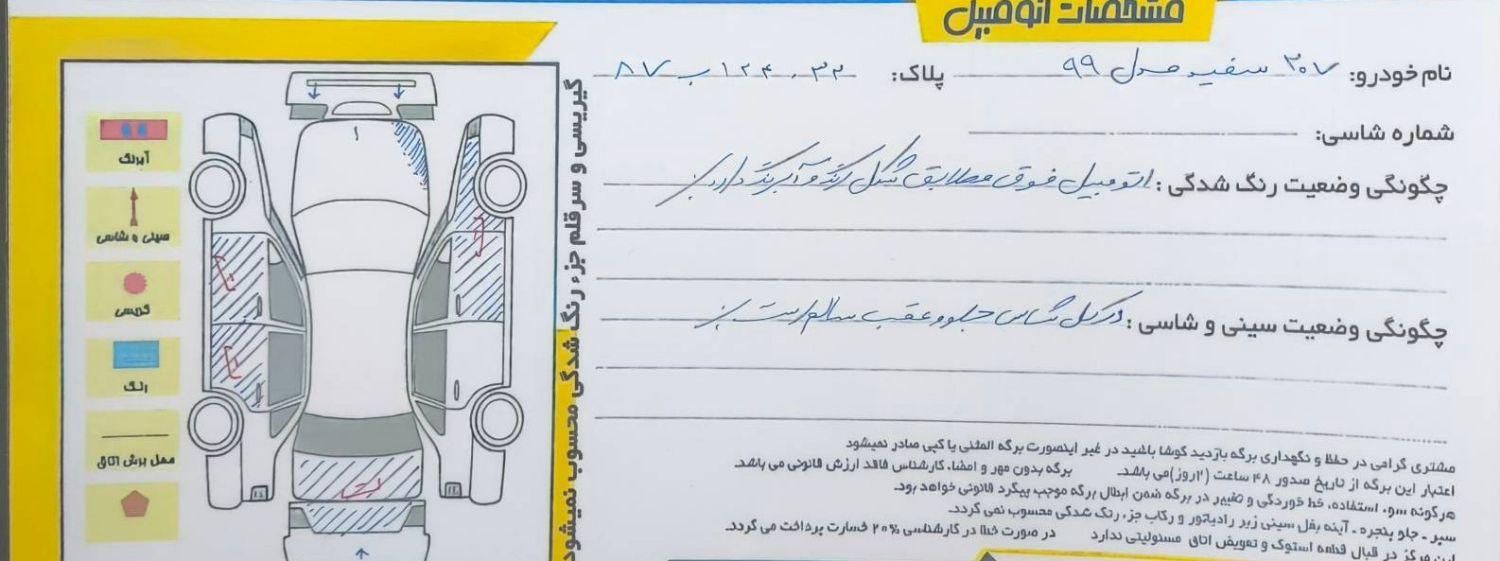 مشخصات اتومبیل
نام خودرو: ۲۰۷ سفید مدل ۹۹ پلاک: ۳۲ . ۱۲۴ ب ۸۷
شماره شاسی:
چگونگی وضعیت رنگ شدگی : اتومبیل فوق مطابق شکل رنگ و آبرنگ دارد
چگونگی وضعیت سینی و شاسی : در کل شاسی جلو و عقب سالم است
مشتری گرامی در حفظ و نگهداری برگه بازدید کوشا باشید در غیر اینصورت برگه المثنی یا کپی صادر نمیشود
اعتبار این برگه از تاریخ صدور ۴۸ ساعت (۲روز)می باشد. برگه بدون مهر و امضاء کارشناس فاقد ارزش قانونی می باشد.
هرگونه سوء استفاده، خط خوردگی و تغییر در برگه ضمن ابطال برگه موجب پیگرد قانونی خواهد بود.
سپر - جلو پنجره - آینه بغل سینی زیر رادیاتور و رکاب جزء رنگ شدگی محسوب نمی گردد.
این مرکز در قبال قطعه استوک و تعویض اتاق مسئولیتی ندارد در صورت خطا در کارشناسی ۲۰% خسارت پرداخت می گردد.
گیریسی و سرقلم جزء رنگ شدگی محسوب نمیشود
آبرنگ
سینی و شاسی
گریسی
رنگ
محل برش اتاق